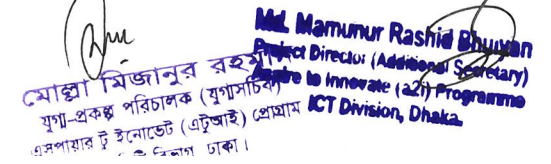 মোল্লা মিজানুর রহমান
যুগ্ম-প্রকল্প পরিচালক (যুগ্মসচিব)
এসপায়ার টু ইনোভেট (এটুআই) প্রোগ্রাম
বিভাগ ঢাকা।
Md. Mamunur Rashid Bhuiyan
Project Director (Additional Secretary)
Aspire to Innovate (a2i) Programme
ICT Division, Dhaka.